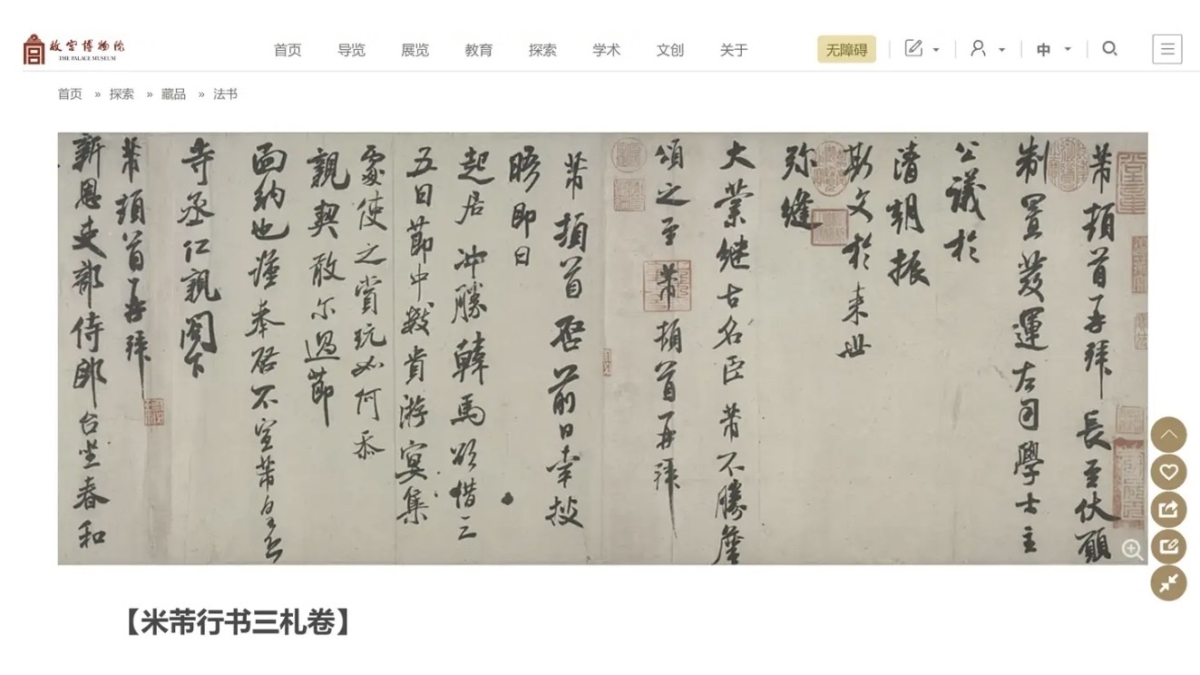 故宫博物院
THE PALACE MUSEUM
首页 导览 展览 教育 探索 学术 文创 关于
无障碍
中
首页 » 探索 » 藏品 » 法书
芾頓首再拜長至伏願
制置發運左司學士主
公議於
清朝振
斯文於來世
弥縫
大業继古名臣芾不勝
頌之至芾頓首再拜
芾頓首啓前日幸披
晤即日
起居冲勝韓馬欲借三
五日節中數貴游宴集
處使之賞玩如何忝
親契敢尔過節
面納也謹奉啓不宣芾頓首
寺丞仁親閣下
芾頓首再拜
新恩吏部侍郎台坐春和
【米芾行书三札卷】